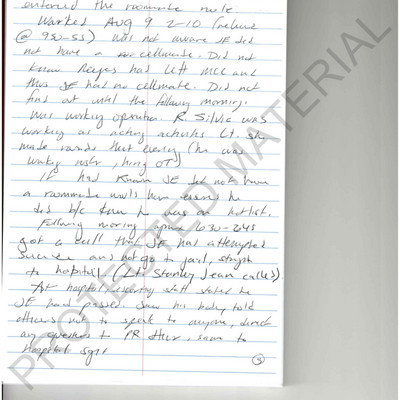 entered the roommate rule
Worked Aug 9 2-10 (relieve
@ 950-55) Was not aware JE did
not have a roo cellmate. Did not
know Reeyes had left MCC and
thus JE had no cellmate. Did not
find out until the following morning.
Was working operation. R. Silvia was
working as acting activities Lt. she
made rounds that evening (he was
working , hiring OT)
If had known JE did not have
a roommate would have ensured he
did b/c knew he was on hotlist.
Following morning approx 630-645
got a call that JE had attempted
suicide and not go to jail, straight
to hospital. (Lt. Stanley Jean called)
At hospital escorting staff stated to
JE had passed. Saw his body, told
officers not to speak to anyone, direct
any questions to PR officer, same to
hospital sgt
5
PROTECTED MATERIAL